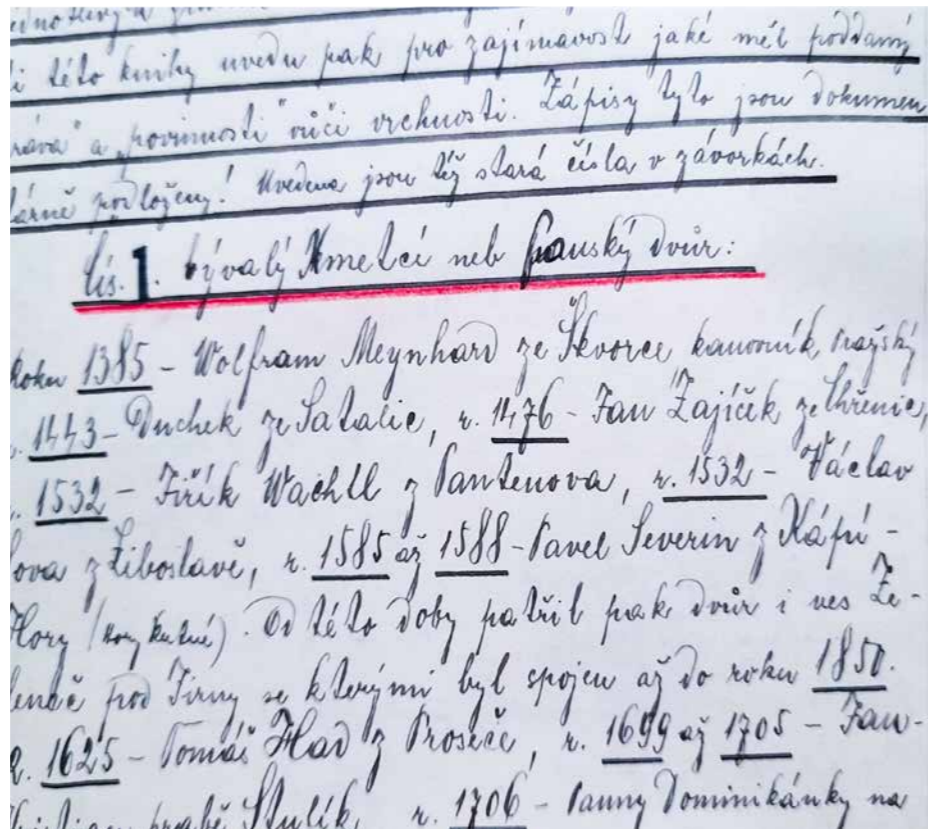 i této knihy uvedu pak pro zajímavost jaké měl poddaný
ráva" a „povinnosti" vůči vrchnosti. Zápisy tyto jsou dokumen
tárně podloženy! Uvedena jsou též stará čísla v závorkách.
čís. 1. bývalý Kmetcí neb Panský dvůr:
Roku 1385 – Wolfram Meynhard ze Škvorce kanovník pražský
. 1443 – Duchek ze Satalic, r. 1476 – Jan Zajíček
. 1532 – Jiřík Wachtl z Pantenova, r. 1532 – Václav
r. 1585 až 1588 – Pavel Severin z Kápí-
Hory (hory kutné). Od této doby patřil pak dvůr i ves Ze-
leneč pod Jirny se kterými byl spojen až do roku 1850.
R. 1625 – Tomáš Hlad z Proseče, r. 1699 až 1705 – Jan-
Štulík, r. 1706 – Panny Dominikánky na